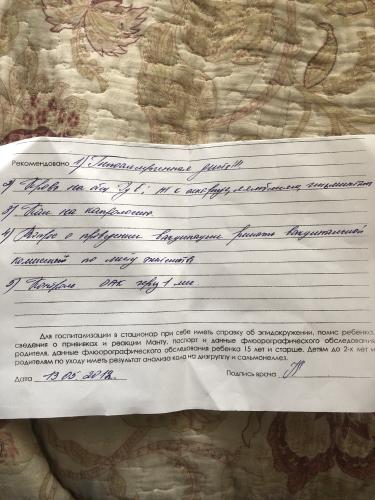 Рекомендовано 1) Гипоаллергенная диета!!!
2) Кровь на к
3) Кал на копрологию
4) Вопрос о проведении вакцинации решать вакцинальной
комиссией по месту жительства
5) Контроль ОАК через 1 мес.
Для госпитализации в стационар при себе иметь справку об эпидокружении, полис ребенка,
сведения о прививках и реакции Манту, паспорт и данные флюорографического обследования
родителя, данные флюорографического обследования ребенка 15 лет и старше. Детям до 2-х лет и
родителям по уходу иметь результат анализа кала на диагруппу и сальмонеллез.
Дата 13.05.2019г. Подпись врача